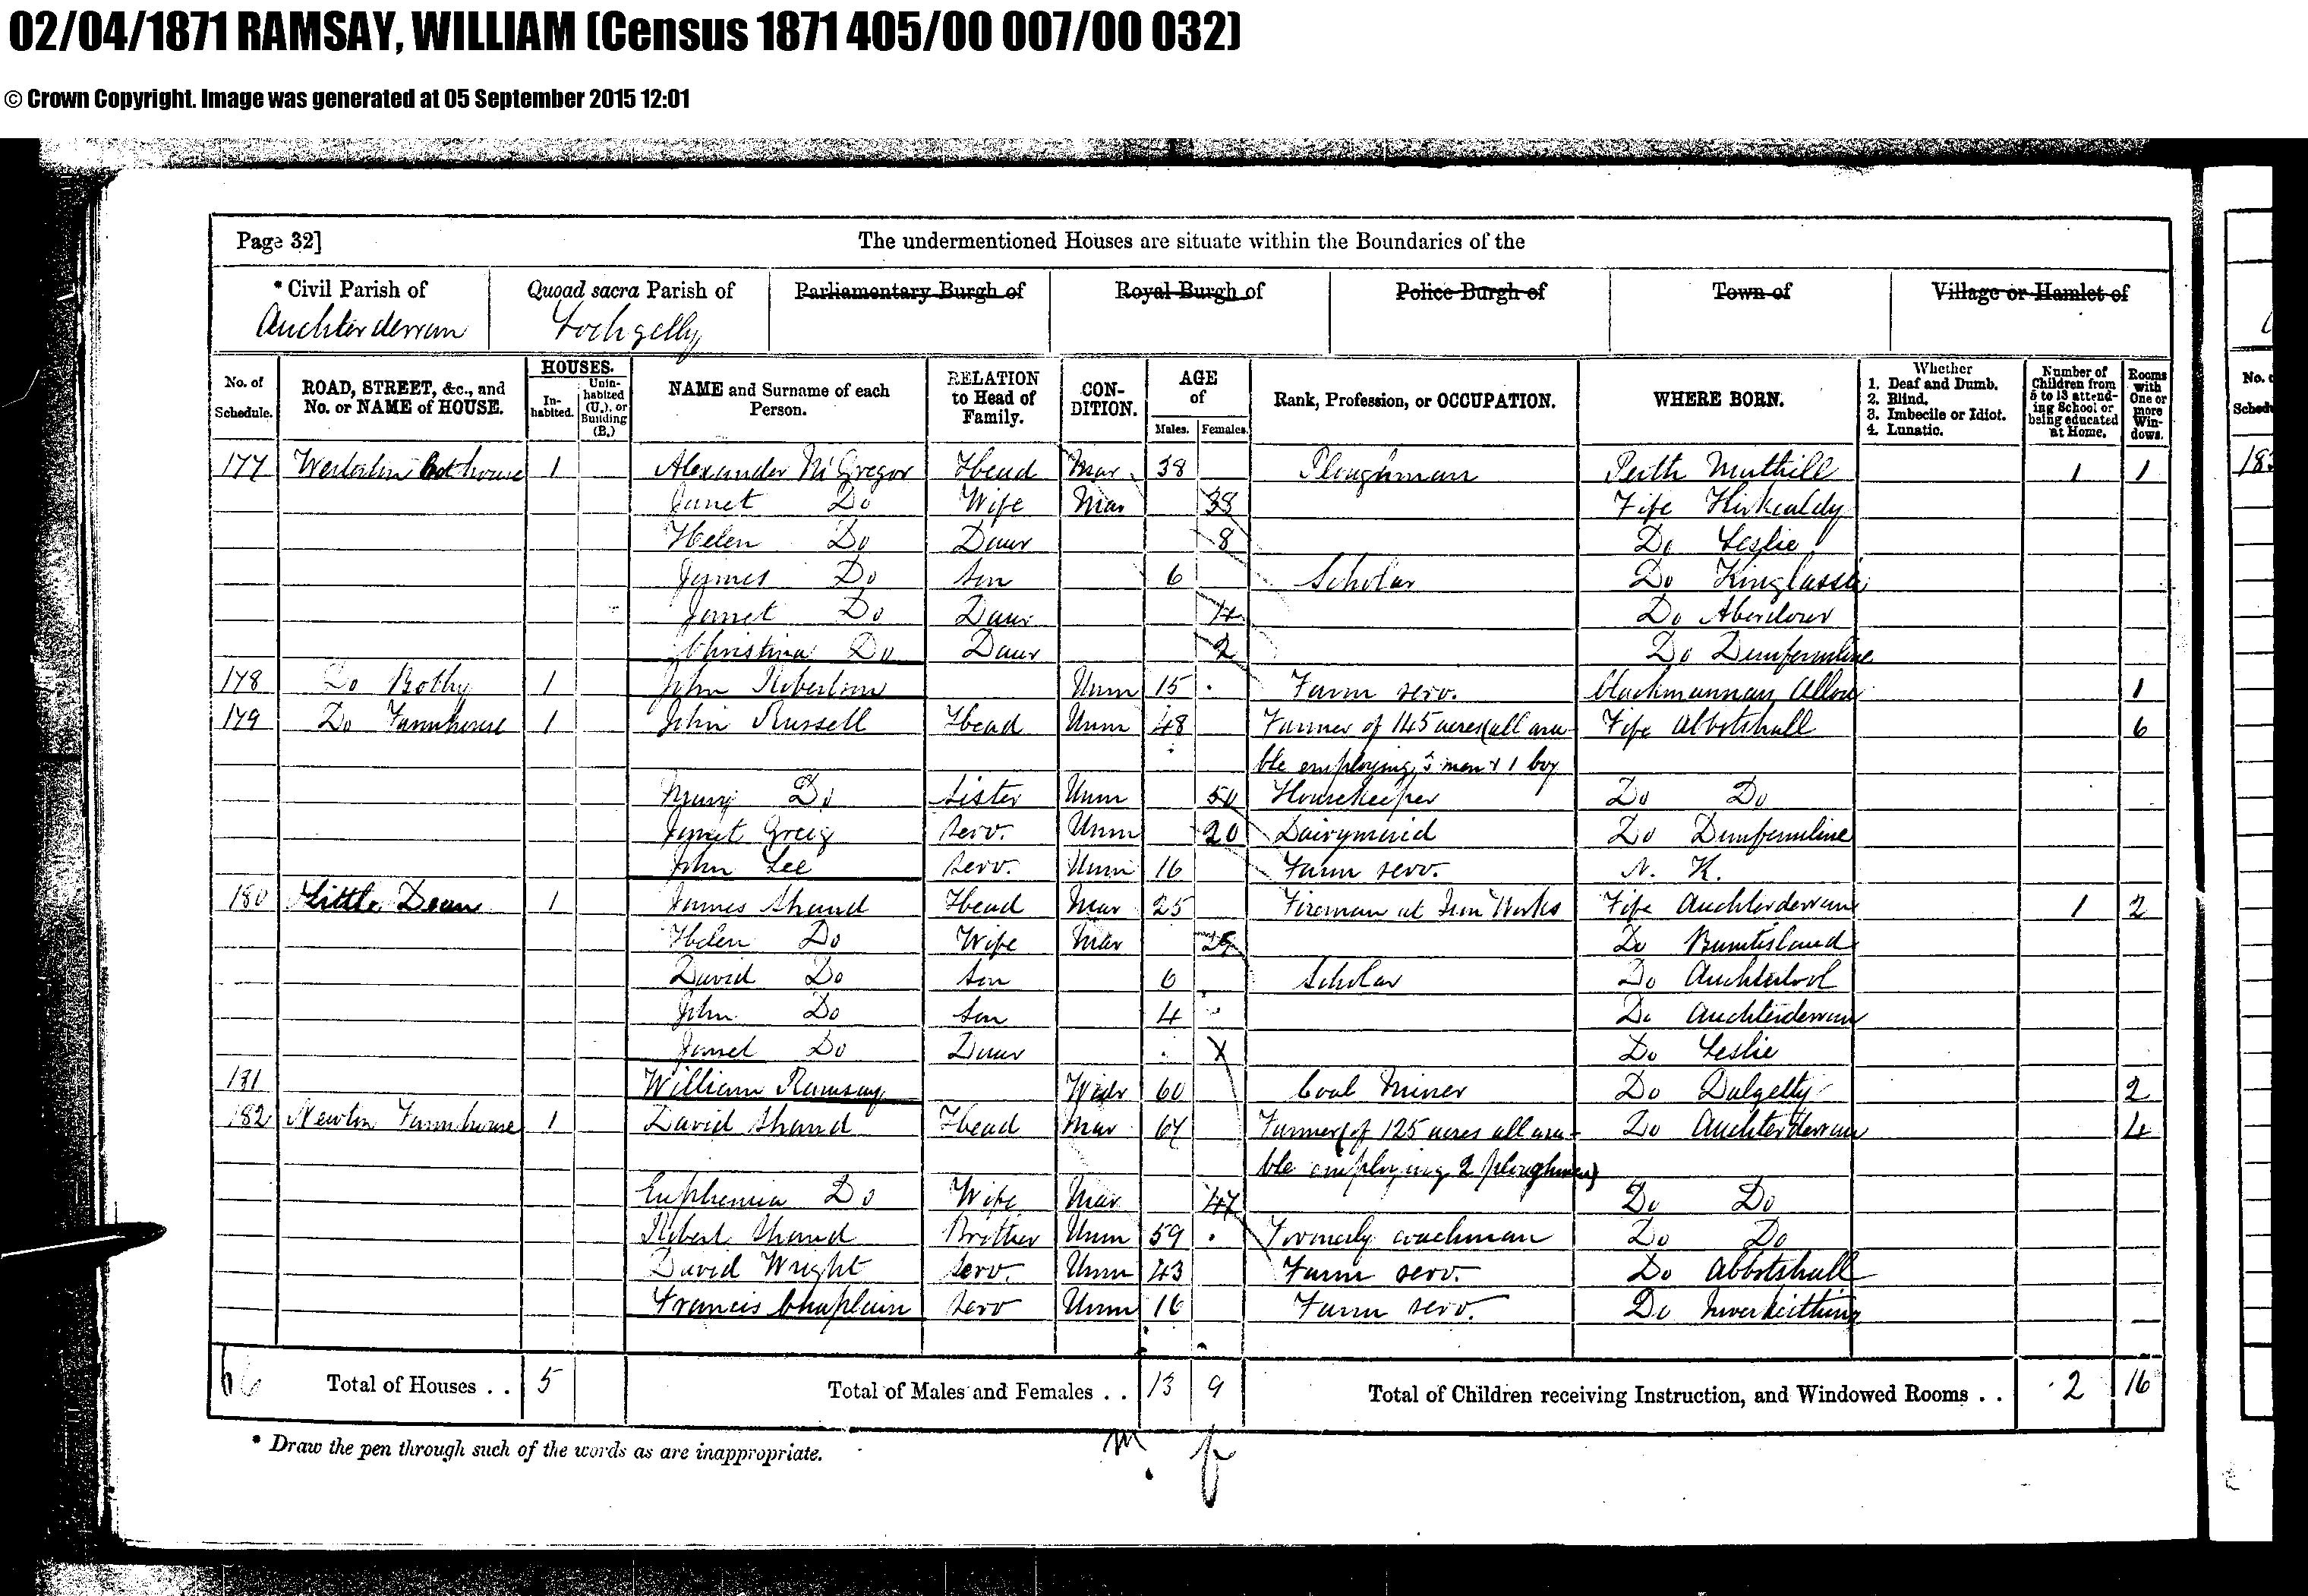 02/04/1871 RAMSAY, WILLIAM (Census 1871 405/00 007/00 032)
© Crown Copyright. Image was generated at 05 September 2015 12:01
Page 32] The undermentioned Houses are situate within the Boundaries of the
* Civil Parish of Quoad sacra Parish of Parliamentary Burgh of Royal Burgh of Police Burgh of Town of Village or Hamlet of
Auchterderran Lochgelly
No. of Schedule. ROAD, STREET, &c., and No. or NAME of HOUSE. HOUSES. Inhabited. Uninhabited (U.), or Building (B.) NAME and Surname of each Person. RELATION to Head of Family. CONDITION. AGE of Males. Females. Rank, Profession, or OCCUPATION. WHERE BORN. Whether 1. Deaf and Dumb. 2. Blind. 3. Imbecile or Idiot. 4. Lunatic. Number of Children from 5 to 13 attending School or being educated at Home. Rooms with One or more Windows.
177 1 Alexander McGregor Head Mar 38 Ploughman Perth Muthill 1 1
Janet Do Wife Mar 38 Fife Kirkcaldy
Helen Do Daur 8 Do Leslie
James Do Son 6 Scholar Do Kinglassie
Janet Do Daur 4 Do Aberdour
Christina Do Daur 2 Do Dunfermline
178 Do Bothy 1 John Robertson Unm 15 Farm serv. Clackmannan Alloa 1
179 Do Farmhouse 1 John Russell Head Unm 48 Farmer of 145 acres (all ara- Fife Abbotshall 6
ble employing 3 men & 1 boy
Mary Do Sister Unm 50 Housekeeper Do Do
Janet Greig Serv. Unm 20 Dairymaid Do Dunfermline
John Lee Serv. Unm 16 Farm serv. N. K.
180 Little Dean 1 James Shand Head Mar 25 Fireman at Iron Works Fife Auchterderran 1 2
Helen Do Wife Mar Do Burntisland
David Do Son 6 Scholar Do Auchtertool
John Do Son 4 Do Auchterderran
Janet Do Daur Do Leslie
181 William Ramsay Widr 60 Coal Miner Do Dalgetty 2
182 Newton Farmhouse 1 David Shand Head Mar 67 Farmer (of 125 acres all ara- Do Auchterderran 4
ble employing 2 ploughmen)
Euphemia Do Wife Mar 47 Do Do
Robert Shand Brother Unm 59 Formerly coachman Do Do
David Wright Serv. Unm 43 Farm serv. Do Abbotshall
Francis Chaplain Serv Unm 16 Farm serv. Do Inverkeithing
66 Total of Houses . . 5 Total of Males and Females . . 13 9 Total of Children receiving Instruction, and Windowed Rooms . . 2 16
* Draw the pen through such of the words as are inappropriate.
m f